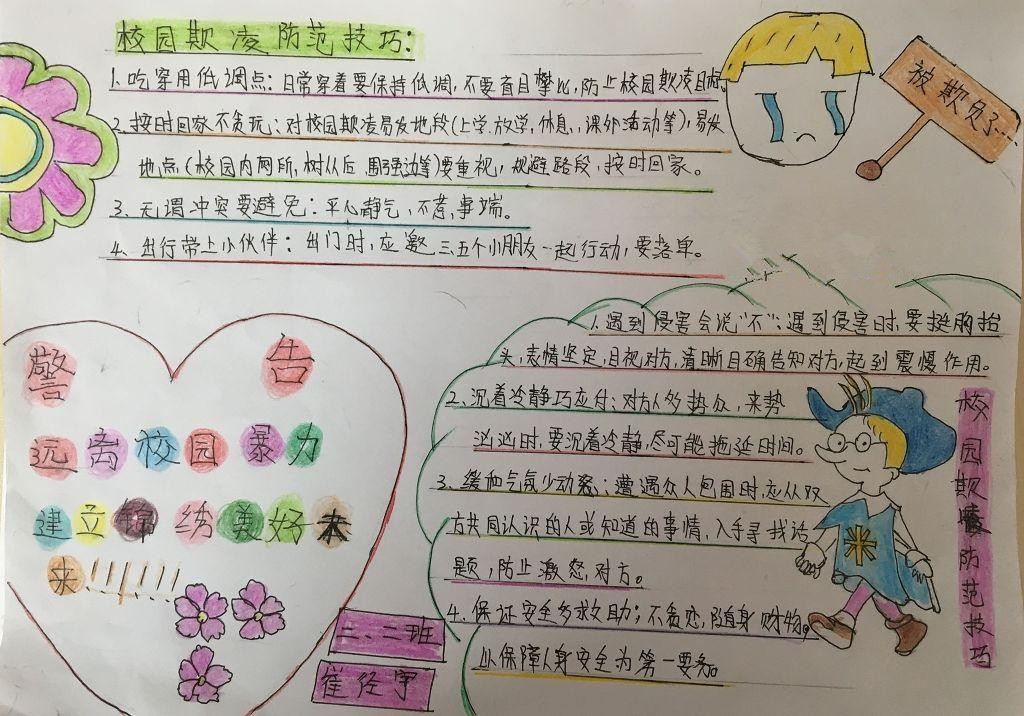 校园欺凌防范技巧:
1.吃穿用低调点:日常穿着要保持低调,不要盲目攀比,防止校园欺凌目标。
2.按时回家不贪玩;对校园欺凌易发地段(上学.放学,休息、,课外活动等),易发
地点(校园内厕所,树从后 围强边等)要重视,规避路段,按时回家。
3.无谓冲突要避免:平心静气,不惹事端。
4、出行带上小伙伴:出门时,应邀三五个小朋友一起行动,要落单。
被欺负了…
警告
远离校园暴力
建立锦绣美好未
来!!!!!!
二、二班
崔径宇
1.遇到侵害会说“不”;遇到侵害时,要挺胸抬
头,表情坚定,目视对方,清晰目确告知对方,起到震慑作用。
2、沉着冷静巧应付:对方人多势众,来势
汹汹时,要沉着冷静,尽可能拖延时间。
3、缓和气氛少动怒;遭遇众人包围时,应从双
方共同认识的人或知道的事情,入手寻找话
题,防止激怒,对方。
4.保证安全多求助;不贪恋,随身财物。
以保障人身安全为第一要务
校园欺凌防范技巧